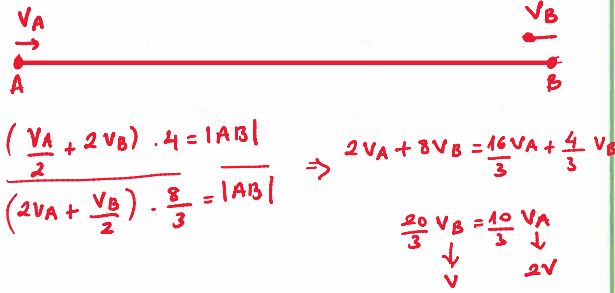 V_A V_B
A B
(V_A/2 + 2V_B) · 4 = |AB|
(2V_A + V_B/2) · 8/3 = |AB|
⇒ 2V_A + 8V_B = 16/3 V_A + 4/3 V_B
20/3 V_B = 10/3 V_A
↓ ↓
V 2V